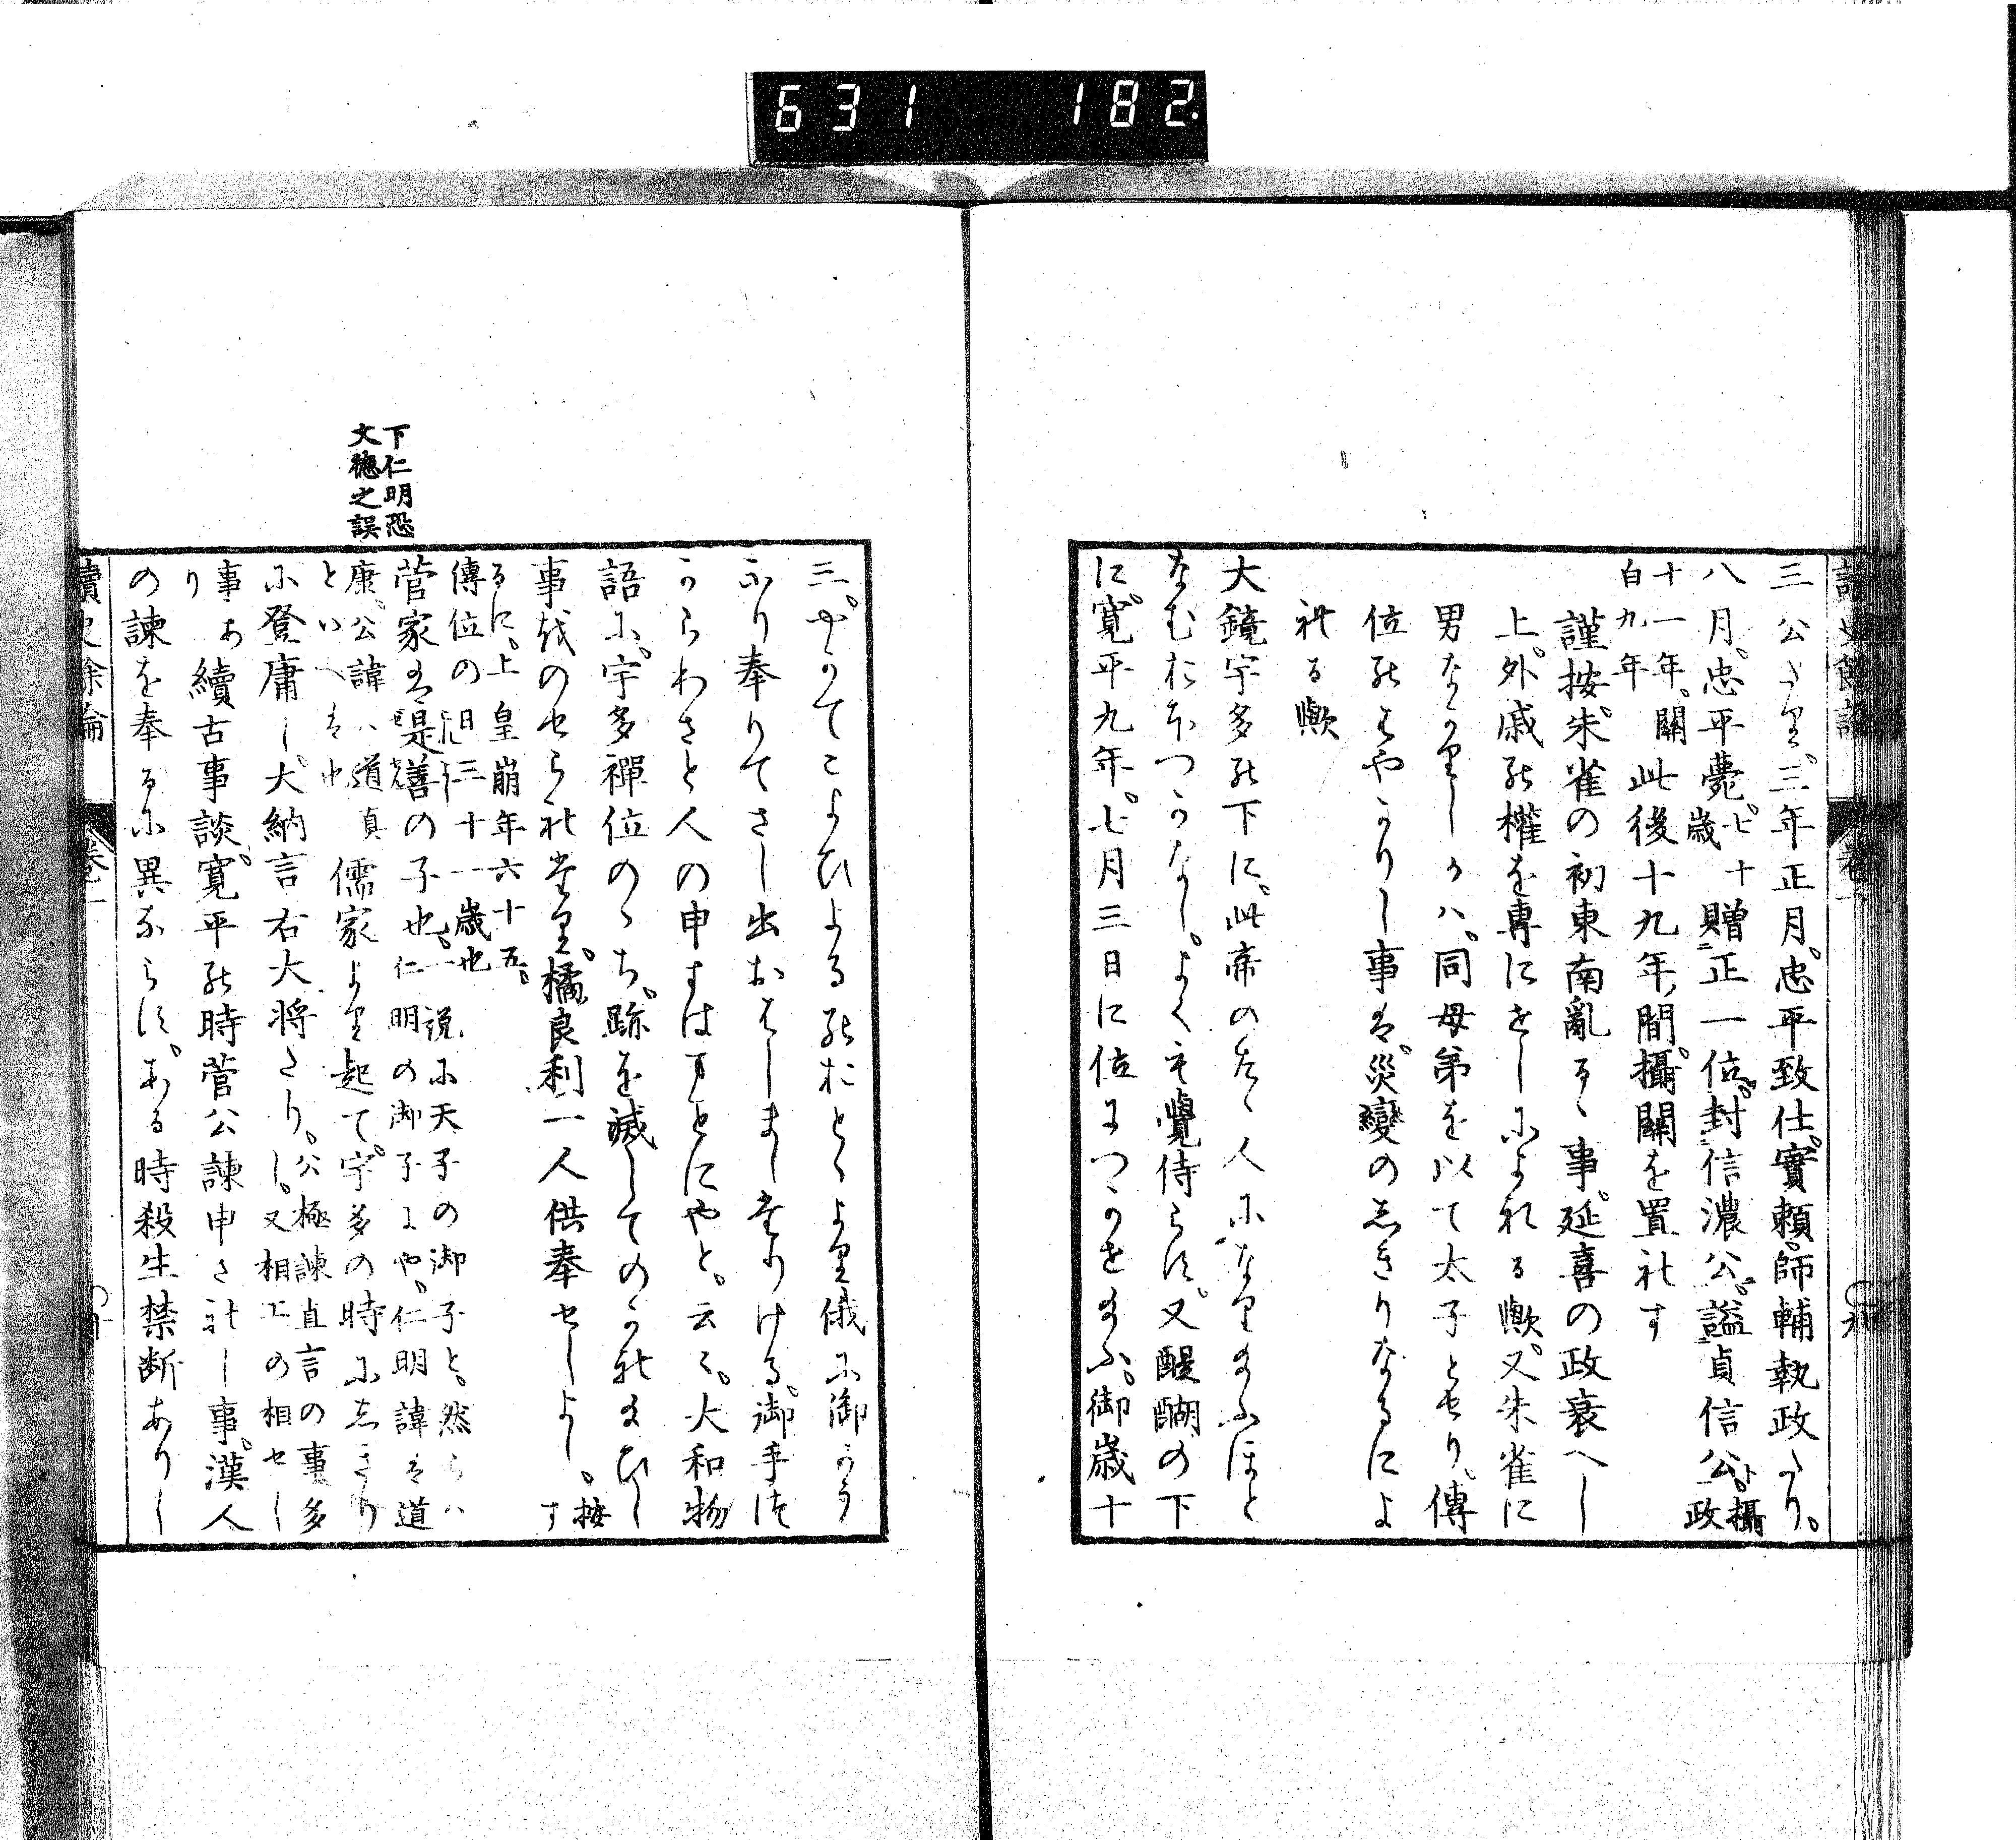 631 182
讀史餘論 卷一
三公たり。三年正月。忠平致仕。實頼。師輔執政たり。
八月。忠平薨。七十歳 贈正一位。封信濃公。謚貞信公。攝政
十一年。關白九年 此後十九年。間。攝關を置れす
謹按。朱雀の初東南亂るゝ事。延喜の政衰へし
上。外戚の權を專にせしによれる歟。又朱雀に
男なかりしかハ。同母弟を以て太子とせり。傳
位のはやかりし事は。災變のしきりなるによ
れる歟
大鏡宇多の下に。此帝のたゝ人になり給ふほと
なむおほつかなし。よくも覺侍らす。又醍醐の下
に。寛平九年。七月三日に位につかせ給ふ。御歳十
三。やかてこよひよるのおとゝより俄に御かう
ふり奉りてさし出おはしましたりける。御手つ
からわさと人の申すはまことにやと。云々。大和物
語に。宇多禪位のゝち。跡を滅してのかれ給ひし
事をのせられたり。橘良利一人供奉せしよし。按す
るに。上皇崩年六十五。
傳位の日三十一歳也
下仁明恐
文德之誤
菅家は是善の子也。一說に天子の御子と。然らハ仁明の御子にや。仁明諱は道
康。公諱ハ道真といへは也 儒家より起て。宇多の時にしきり
に登庸し。大納言右大将たり。公極諫直言の事多し。又相工の相せし
事あり 續古事談。寛平の時菅公諫申されし事。漢人
の諫を奉るに異ならす。ある時殺生禁断ありし
讀史餘論 卷一